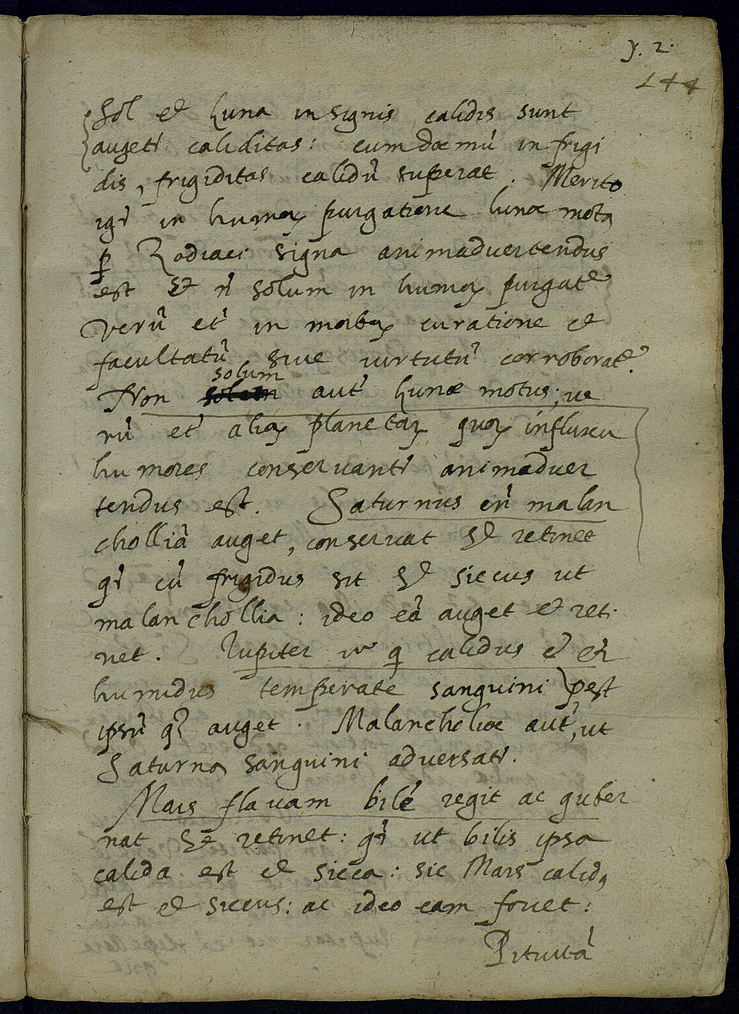 y. 2.
144
Sol et Luna in signis calidis sunt
augetr̃ caliditas: cum domũ in frigi
dis, frigiditas calidũ superat. Merito
igr̃ in humoꝝ purgatione lunæ motꝯ
ꝑ Zodiaci signa animaduertendus
est Et ñ solum in humoꝝ purgatẽ
verũ et̃ in morboꝝ curatione et
facultatũ siue virtutũ corroboratẽ.
Non solum aut̃ Lunæ motus; ve
rũ et̃ alioꝝ planetaꝝ quoꝝ influxu
humores conseruantr̃ animaduer
tendus est. Saturnus enĩ malan
cholliã auget, conseruat Et retinet
qr̃ cũ frigidus sit Et siccus ut
malanchollia: ideo eã auget et reti
net. Iupiter vͦ q̃ calidus est et
humidus temperate sanguini pest
ipsũ qꝫ auget. Malancholiæ aut̃, ut
Saturnꝯ sanguini aduersatr̃.
Mars flauam bilẽ regit ac guber
nat Et retinet: qr̃ ut bilis ipsa
calida est et sicca: sic Mars calidꝯ
est et siccus: ac ideo eam fouet:
Pituitã